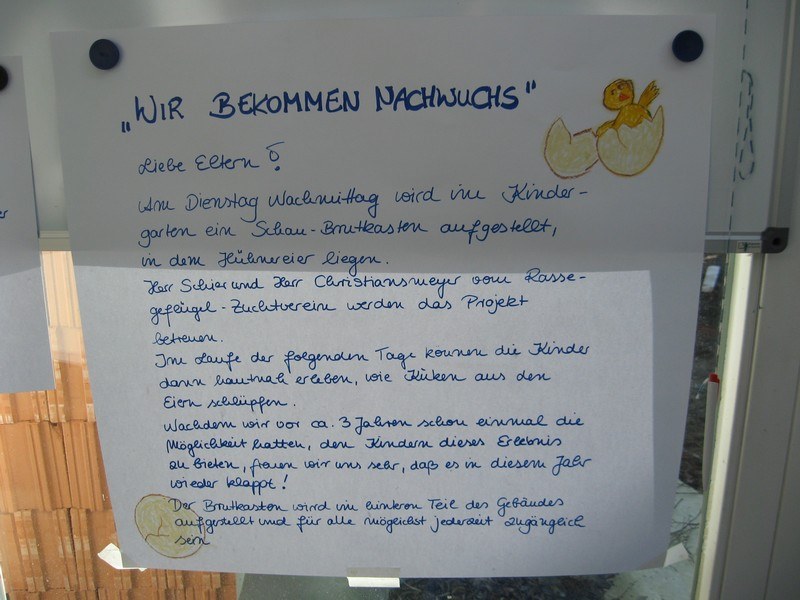 „WIR BEKOMMEN NACHWUCHS"
Liebe Eltern!
Am Dienstag Nachmittag wird im Kinder-
garten ein Schau-Brutkasten aufgestellt,
in dem Hühnereier liegen.
Herr Schier und Herr Christiansmeyer vom Rasse-
geflügel-Zuchtverein werden das Projekt
betreuen.
Im Laufe der folgenden Tage können die Kinder
dann hautnah erleben, wie Küken aus den
Eiern schlüpfen.
Nachdem wir vor ca. 3 Jahren schon einmal die
Möglichkeit hatten, den Kindern dieses Erlebnis
zu bieten, freuen wir uns sehr, daß es in diesem Jahr
wieder klappt!
Der Brutkasten wird im hinteren Teil des Gebäudes
aufgestellt und für alle möglichst jederzeit zugänglich
sein
er